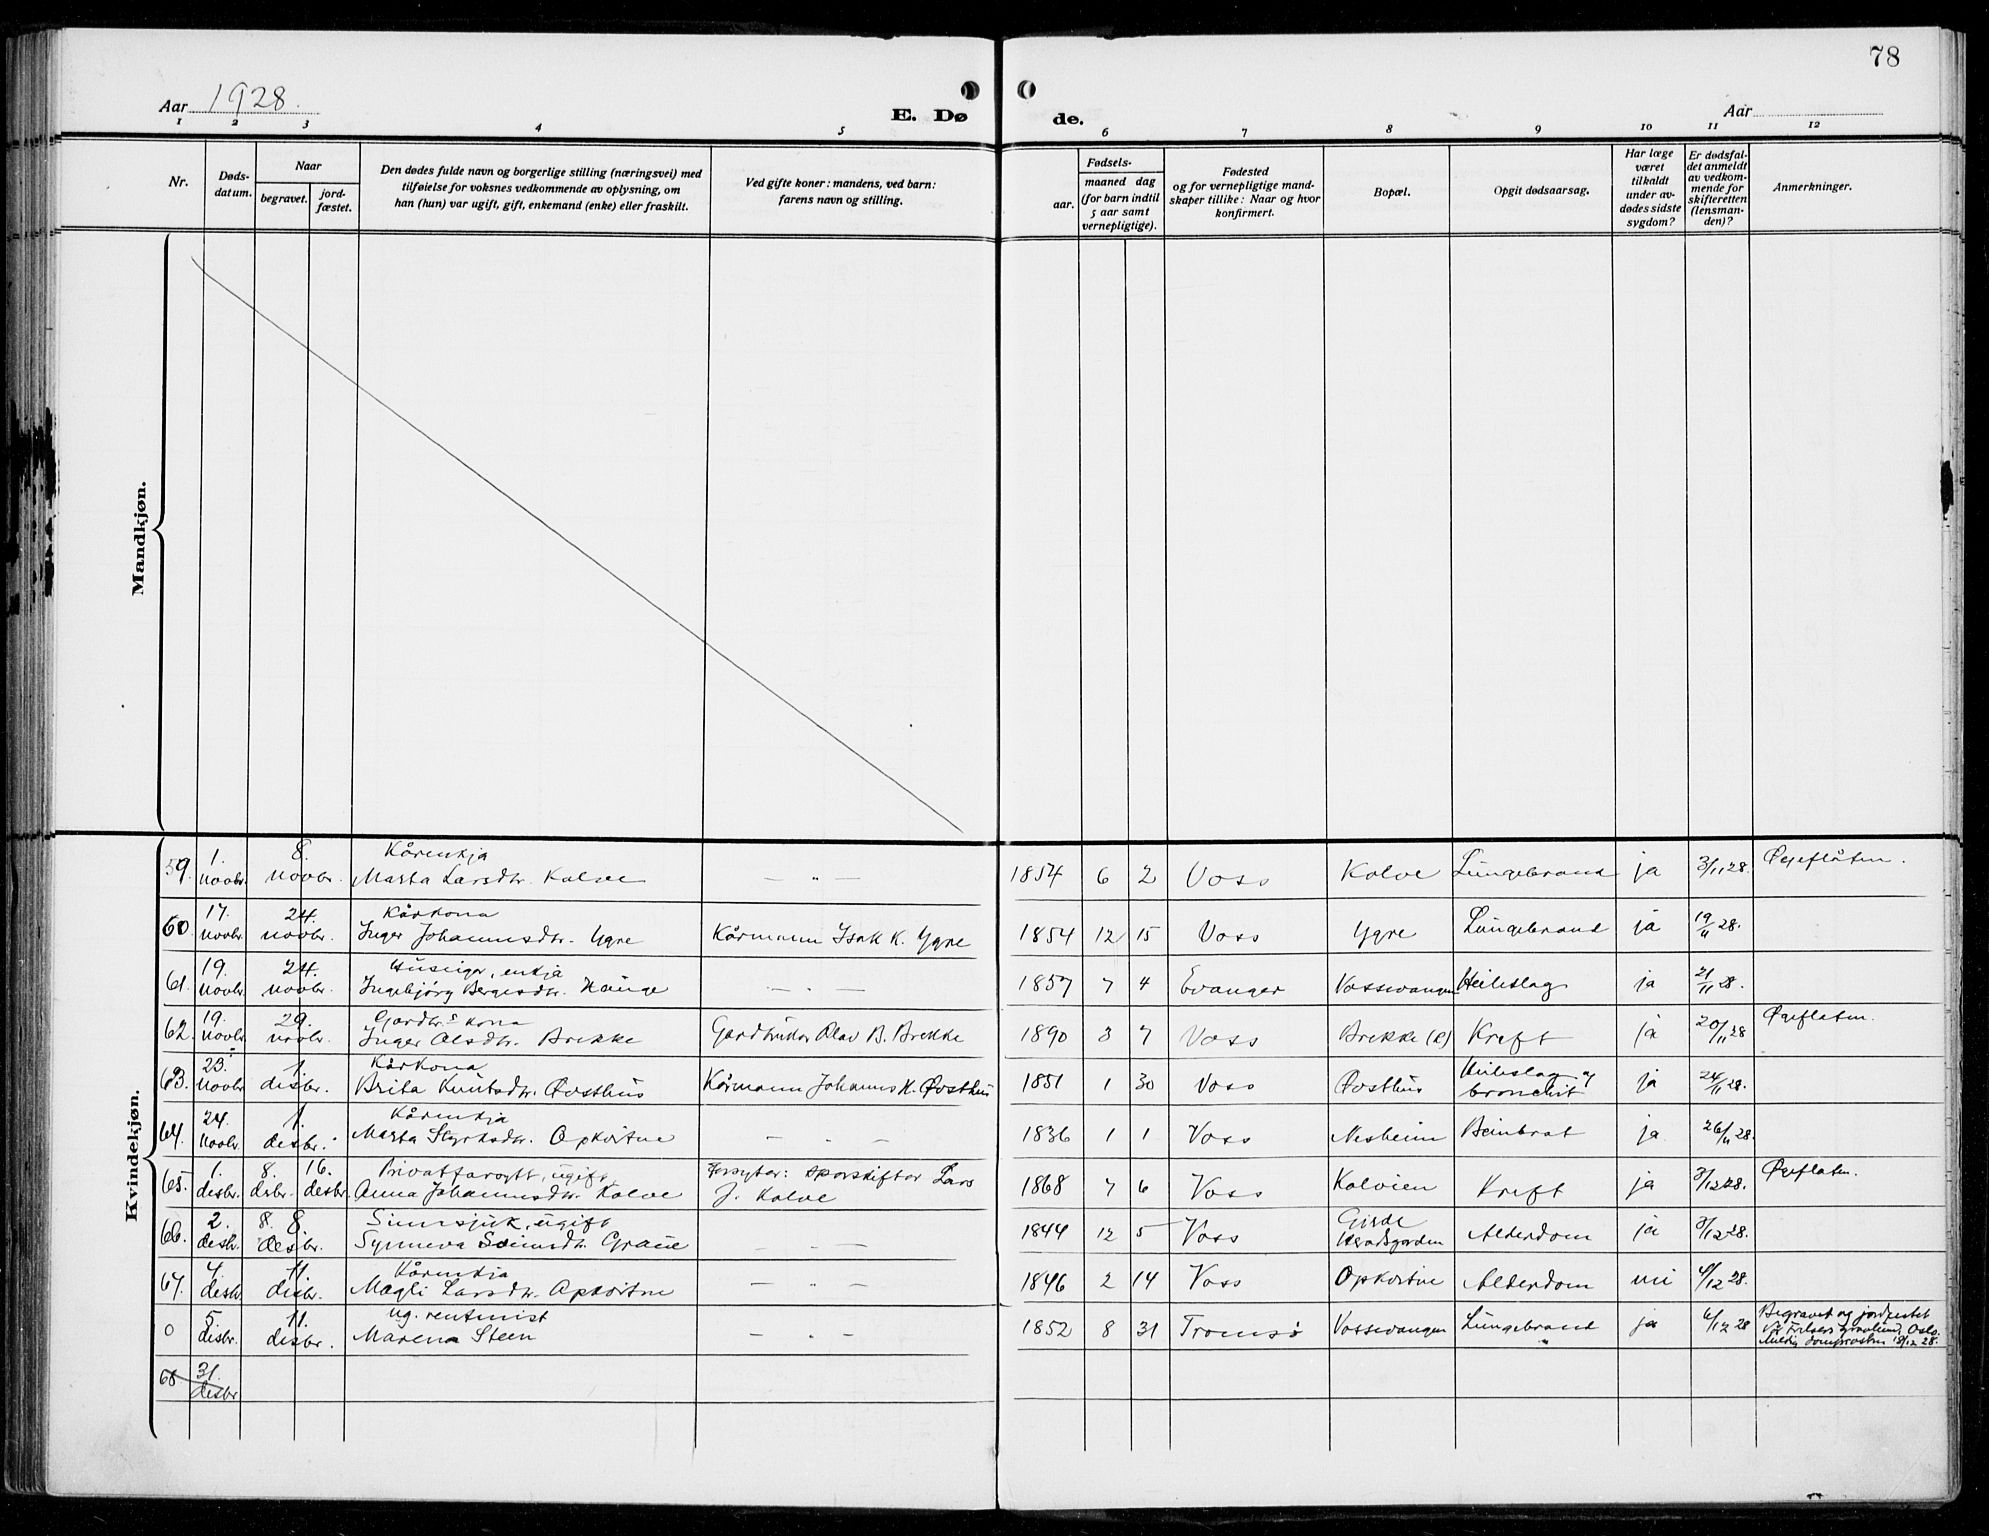 78
Aar 1928.
E. Døde.
Aar
1 2 3 4 5 6 7 8 9 10 11 12
Nr.
Døds-
datum.
Naar
begravet.
jord-
fæstet.
Den dødes fulde navn og borgerlige stilling (næringsvei) med
tilføielse for voksnes vedkommende av oplysning, om
han (hun) var ugift, gift, enkemand (enke) eller fraskilt.
Ved gifte koner: mandens, ved barn:
farens navn og stilling.
Fødsels-
aar.
maaned dag
(for barn indtil
5 aar samt
vernepligtige).
Fødested
og for vernepligtige mand-
skaper tillike: Naar og hvor
konfirmert.
Bopæl.
Opgit dødsaarsag.
Har læge
været
tilkaldt
under av-
dødes sidste
sygdom?
Er dødsfal-
det anmeldt
av vedkom-
mende for
skifteretten
(lensman-
den)?
Anmerkninger.
Mandkjøn.
Kvindekjøn.
1. 8. Kårenkja
59. novbr. novbr. Marta Larsdtr. Kolve — „ — 1854 6 2 Voss Kolve Lungebrand ja 3/11 28. Øyeflåten.
17. 24. Kårkona
60 novbr. novbr. Inger Johannesdtr. Ygre Kårmann Isak K. Ygre 1854 12 15 Voss Ygre Lungebrand ja 19/11 28.
19. 24. Huseiger, enkja
61. novbr. novbr. Ingebjørg Bergesdtr. Hauge — „ — 1857 7 4 Evanger Vossevangen Heileslag ja 21/11 28.
19. 29. Gardbr.s kona
62. novbr. novbr. Inger Olsdtr. Brekke Gardbruker Olav B. Brekke 1890 3 7 Voss Brekke (R) Kreft ja 20/11 28 Øyeflaten.
23. 1. Kårkona
63. novbr. disbr. Brita Knutsdtr. Øvsthus Kårmann Johannes K. Øvsthus 1851 1 30 Voss Øvsthus Heileslag og
bronchit ja 24/11 28.
24. 1. Kårenkja
64. novbr. disbr. Marta Styrksdtr. Opkvitne — „ — 1836 1 1 Voss Nesheim Beinbrot ja 26/11 28.
1. 8. 16. Privatforsytt, ugift
65. disbr. disbr. disbr. Anna Johannesdtr. Kolve Forsytar: sporskiftar Lars
J. Kolve 1868 7 6 Voss Kolvien Kreft ja 3/12 28. Øyeflaten.
2. 8. 8. Sinnsjuk, ugift
66. disbr. disbr. Synneva Seimsdtr. Graue — „ — 1844 12 5 Voss Girde
Heradsgarden Alderdom ja 3/12 28.
4. 11. Kårenkja
67. disbr. disbr. Magli Larsdtr. Opkvitne — „ — 1846 2 14 Voss Opkvitne Alderdom nei 4/12 28.
5. 11. ug. rentenist
0 disbr. disbr. Marena Steen — „ — 1852 8 31 Tromsø Vossevangen Lungebrand ja 6/12 28 Begravet og jordfestet
Vår Frelsers gravlund, Oslo.
Meldg. domprosten 18/12 28.
31.
68 disbr.